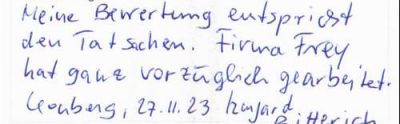 Meine Bewertung entspricht
den Tatsachen. Firma Frey
hat ganz vorzüglich gearbeitet.
Leonberg, 27.11.23